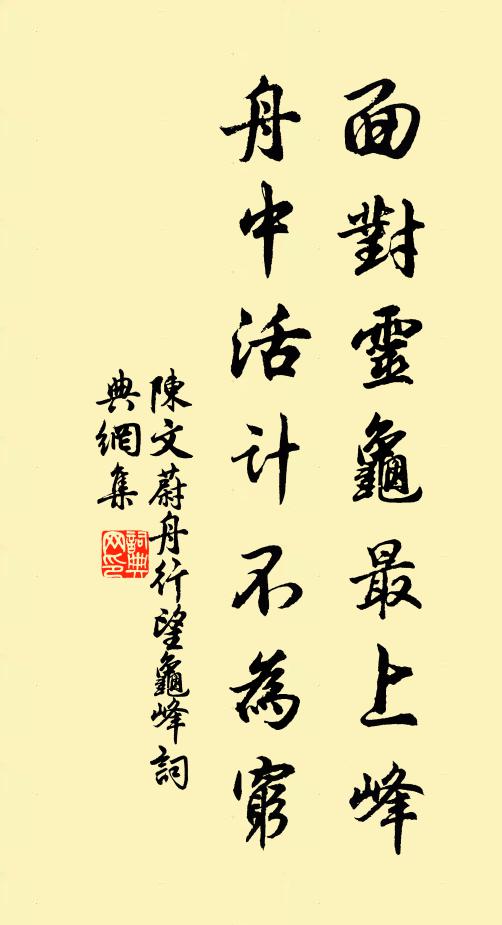 面對靈龜最上峰
舟中活计不為窮
陳文蔚舟行望龜峰詞
典網集
詞典
网印